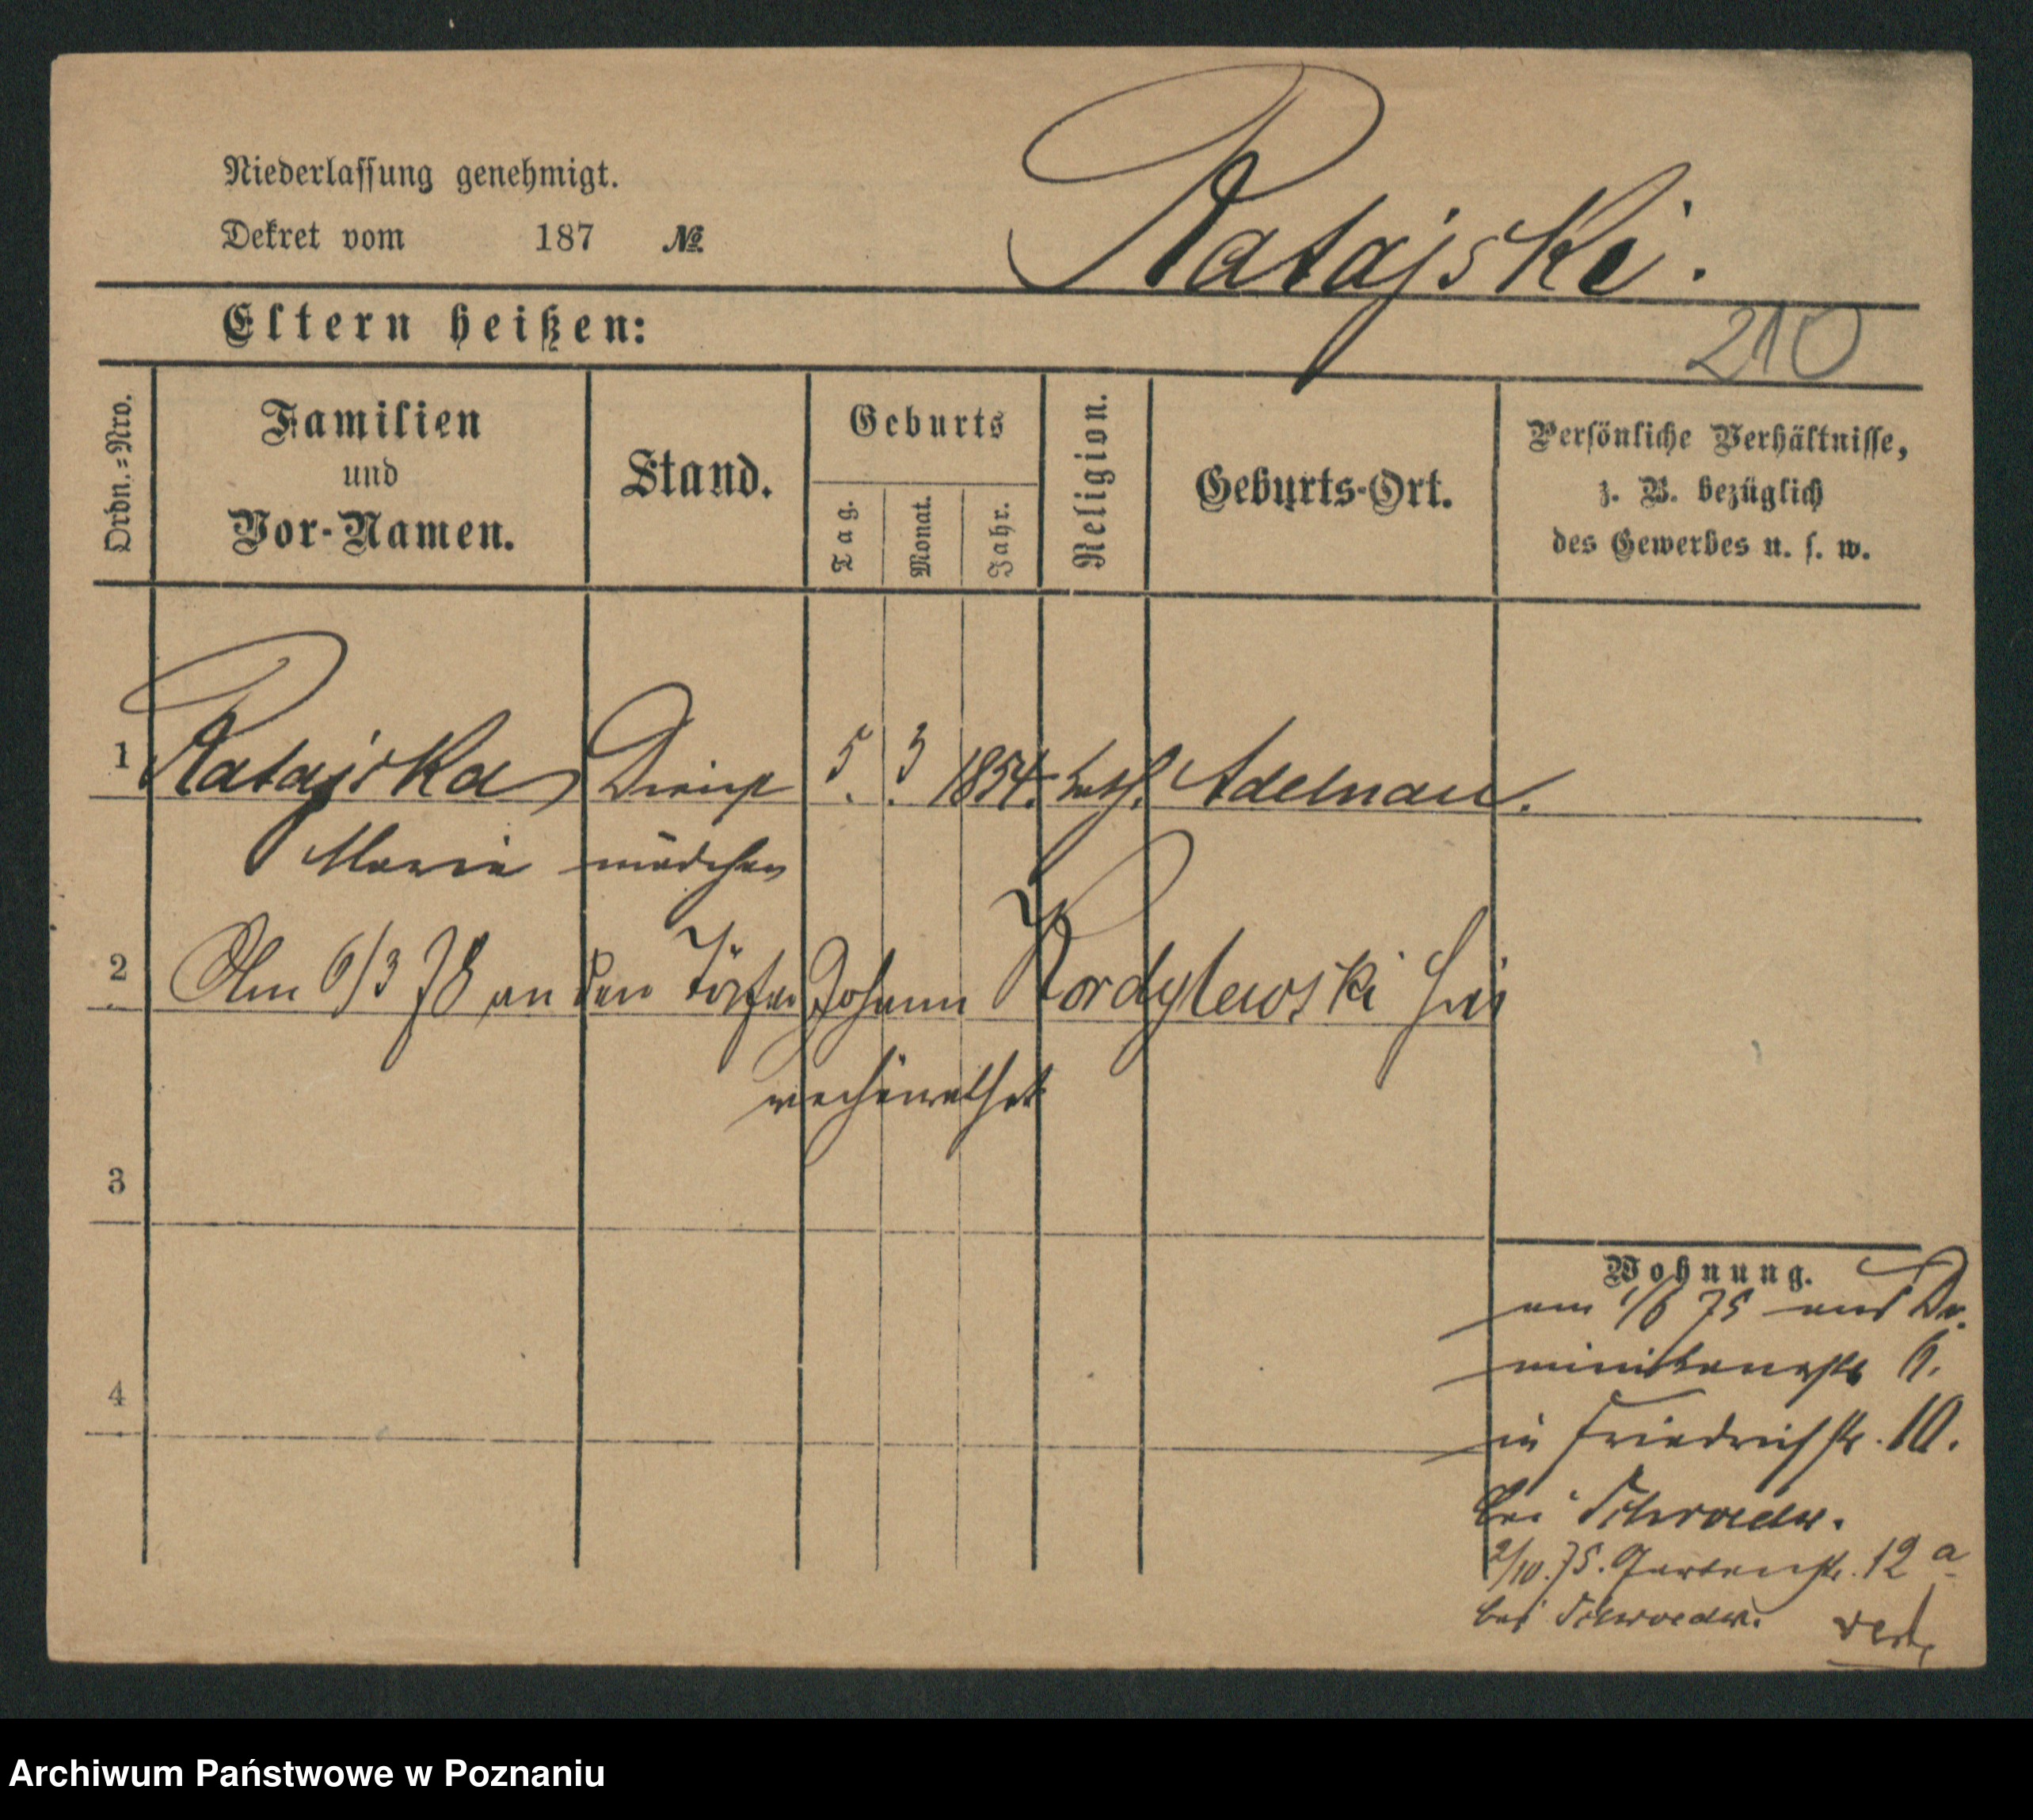 Niederlassung genehmigt.
Dekret vom 187 №
Ratajski.
Eltern heißen:
210
Ordn.=Nro.
Familien
und
Vor-Namen.
Stand.
Geburts
Tag.
Monat.
Jahr.
Religion.
Geburts-Ort.
Persönliche Verhältnisse,
z. B. bezüglich
des Gewerbes u. s. w.
1 Ratajska Dienst 5. 3. 1854. kath. Adelnau.
Marie mädchen
2 Am 6/3 78 an den Töpfer Johann Kordylewski hier
verheirathet
3
4
Wohnung.
am 1/6 75 aus Do.
minikanerstr 6.
in Friedrichstr. 10.
bei Schroeder.
2/10. 75. Gartenstr. 12 a
bei Schroeder.
Archiwum Państwowe w Poznaniu